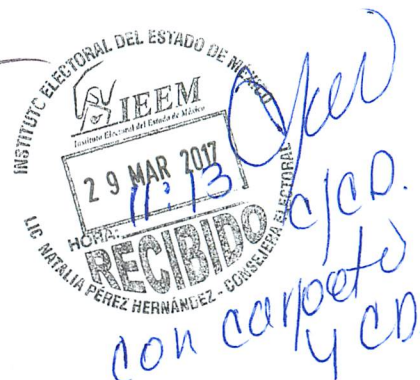 INSTITUTO ELECTORAL DEL ESTADO DE MÉXICO
IEEM
Instituto Electoral del Estado de México
29 MAR 2017
HORA: 11:13
RECIBIDO
LIC. NATALIA PÉREZ HERNÁNDEZ - CONSEJERA ELECTORAL
c/CD.
con carpeta
y CD